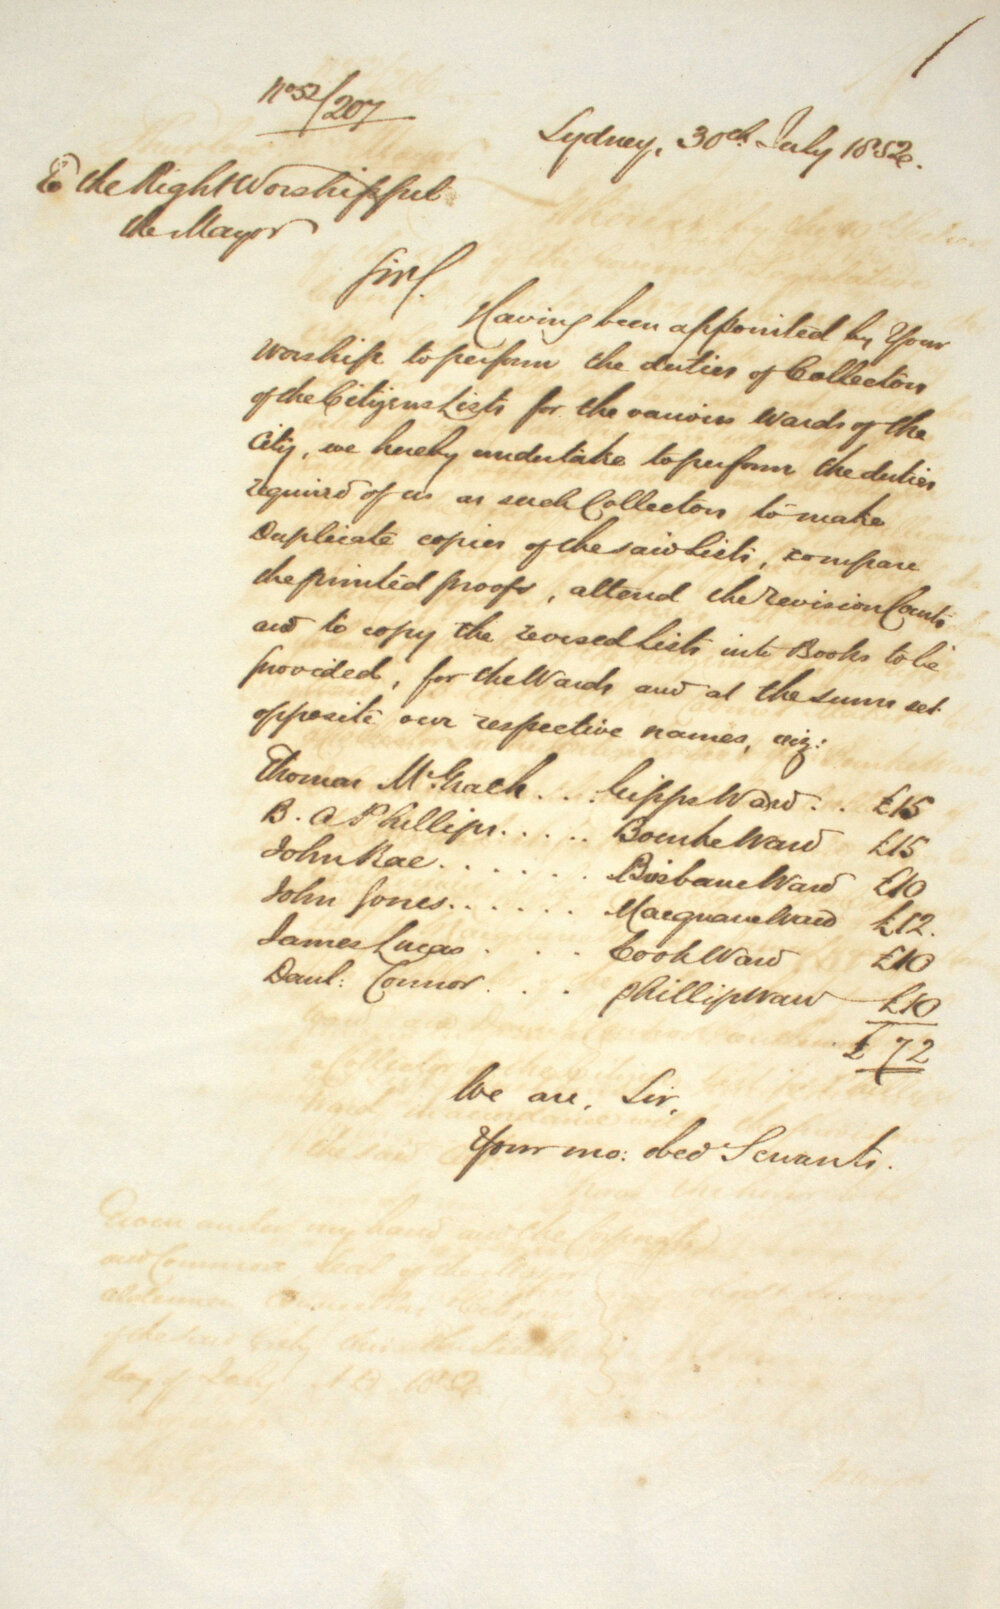 No 52/207
Sydney, 30th July 1852.
To the Right Worshipful
the Mayor
Sir,
Having been appointed by Your
Worship to perform the duties of Collectors
of the Citizens Lists for the various Wards of the
City, we hereby undertake to perform the duties
required of us as such Collectors to make
Duplicate copies of the said Lists, compare
the printed proofs, attend the Revision Courts
and to copy the revised Lists into Books to be
provided, for the Wards and at the sums set
opposite our respective names, viz:
Thomas McGrath . . . Gipps Ward . . £15
B. A. Phillips . . . . . Bourke Ward £15
John Rae . . . . . . Brisbane Ward £10
John Jones . . . . . . Macquarie Ward £12.
James Lucas . . . Cook Ward £10
Danl: Connor . . . Phillip Ward £10
£ 72
We are, Sir,
Your mo: obed Servants.